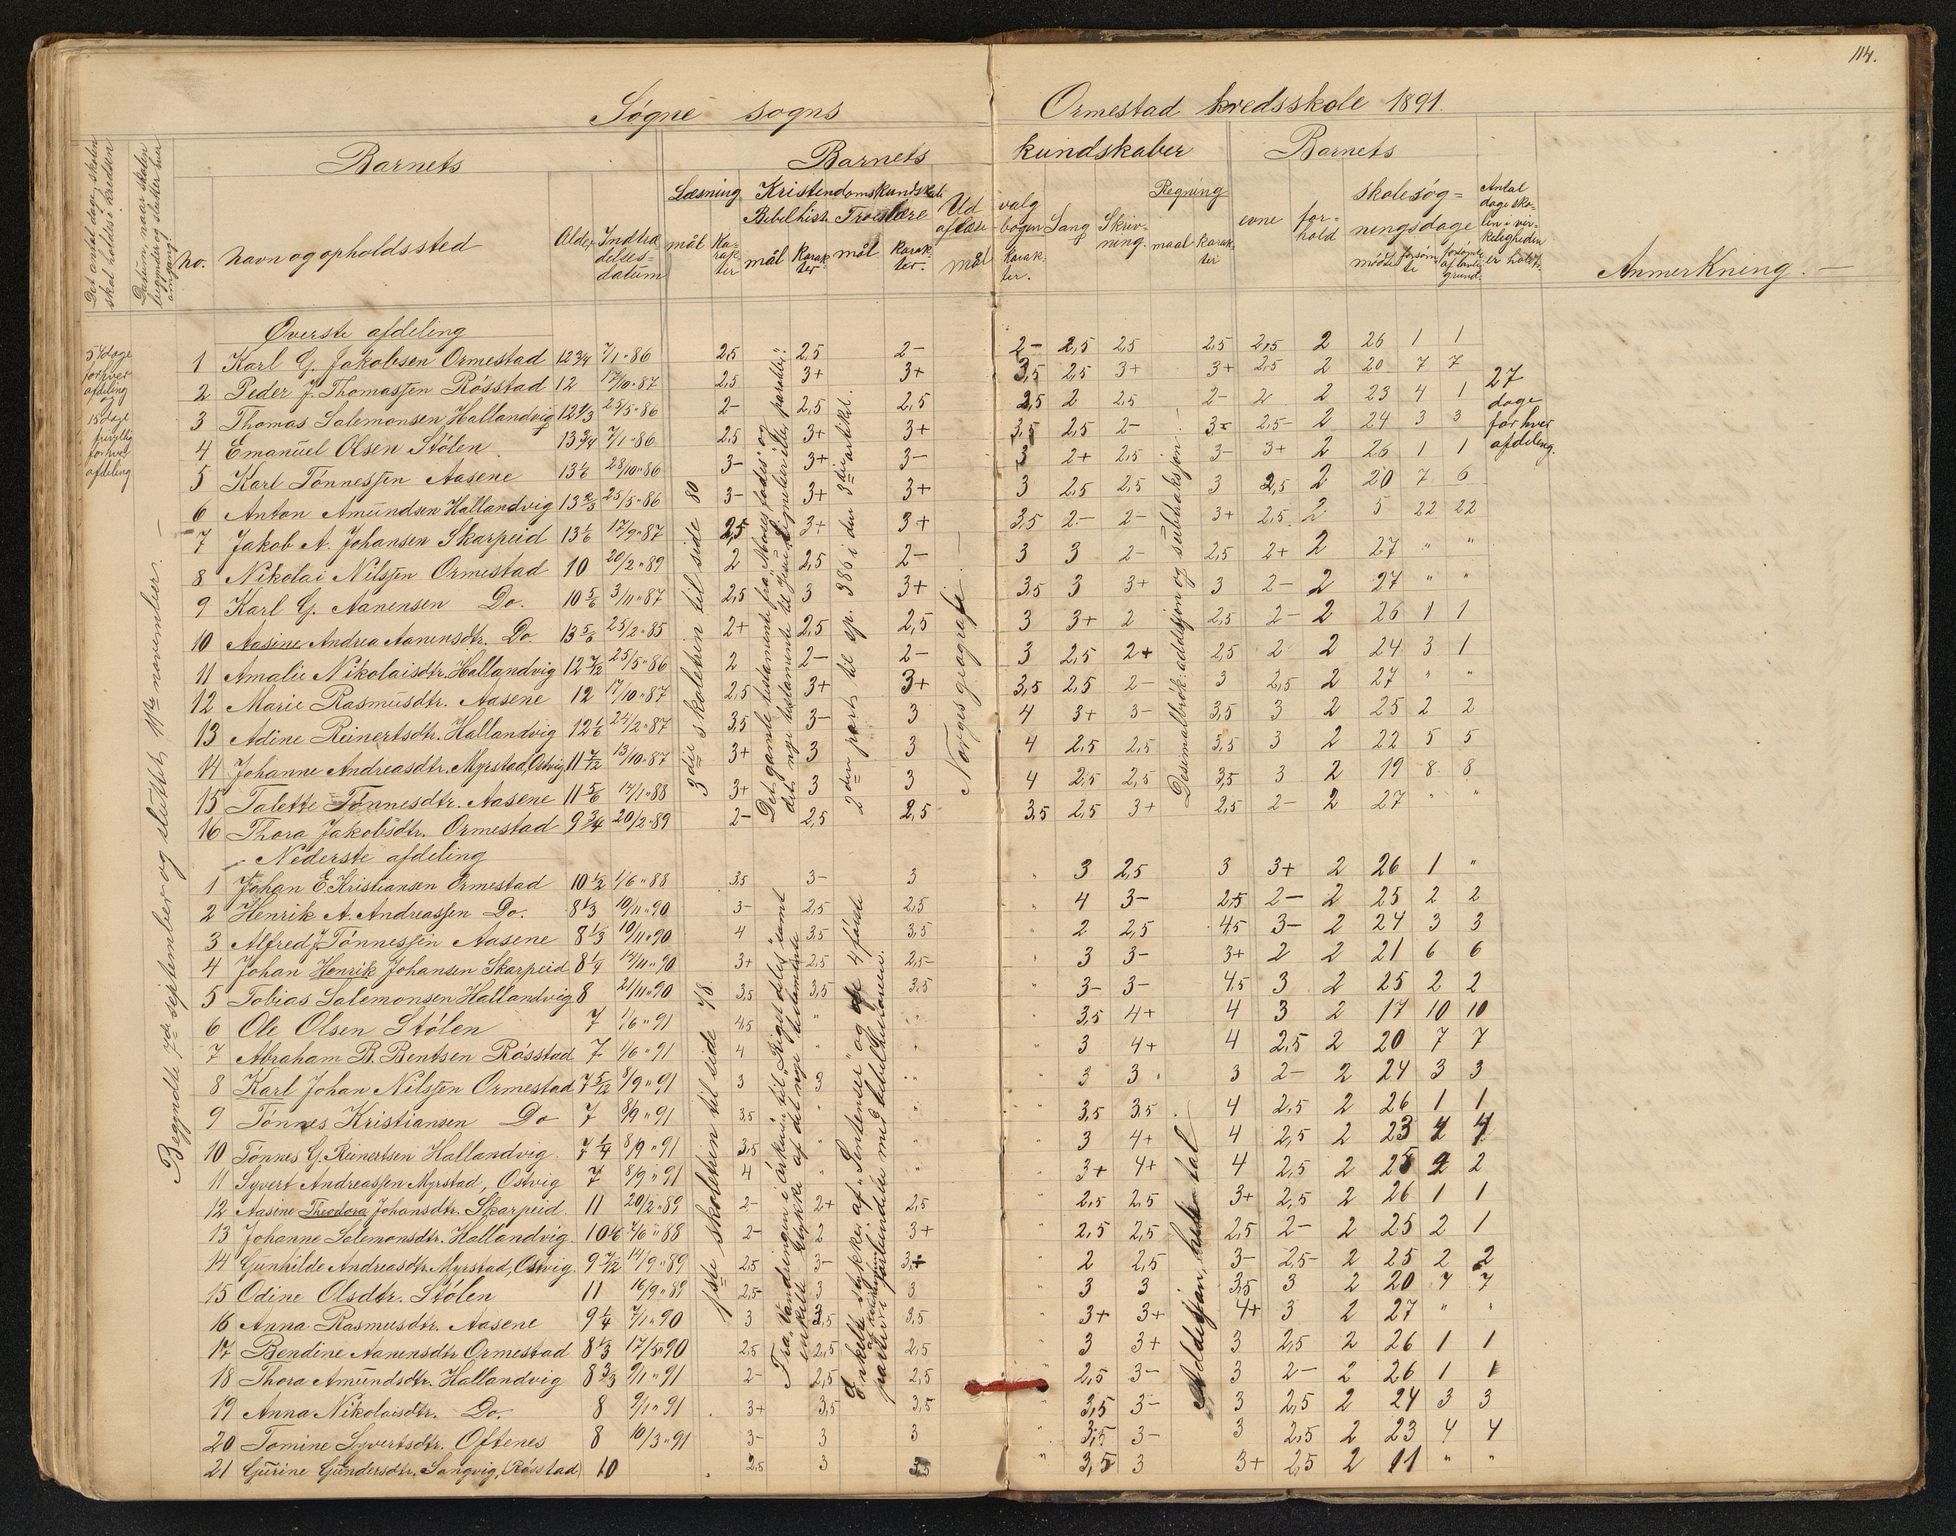 114.
Søgne sogns Ormestad kredsskole 1891.
Det antal dage, skolen skal holdes i kredsen
Datum, naar skolen begynder og slutter hver
Barnets
no.
Navn og opholdssted
Alder
Indtrædelsesdatum
Barnets kundskaber
Læsning
mål
Karakter
Kristendomskundskab
Bibelhist.
mål
Karakter
Troeslære
mål
Karakter
Udvalg af læsebogen
mål
Karakter.
Sang
Skrivning.
Regning
maal
Karakter
Barnets
evne
forhold
skolesøgningsdage
mødte
forsømte
Antal dage skolen i virkeligheden er holdt
Anmerkning. —
54 dage for hver afdeling og 15 dage frivillig for hver afdeling
Begyndte 7de september og sluttet 11te november. —
Øverste afdeling
1 Karl G. Jakobsen Ormestad 12 3/4 7/1 "86 2,5 2,5 2- 2- 2,5 2,5 2,5 2,5 2 26 1 1
2 Peder J. Thomassen Røsstad 12 17/10 "87 2,5 3+ 3+ 3,5 2,5 3+ 3+ 2,5 2 20 7 7
3 Thomas Salemonsen Hallandvig 12 1/3 25/5 "86 2- 2,5 2,5 2,5 2 2,5 2- 2 2 23 4 1
4 Emanuel Olsen Stølen 13 3/4 7/1 "86 2,5 3+ 3+ 3,5 2,5 2- 3- 2,5- 2 24 3 3
5 Karl Tønnessen Aasene 13 1/6 28/10 "86 3- 3+ 3- 3 2+ 2,5 3- 3+ 2 26 1 1
6 Anton Amundsen Hallandvig 13 2/3 25/5 "86 3- 3+ 3+ 3 2,5 2,5 3 2,5 2 20 7 6
7 Jakob A. Johansen Skarpeid 13 1/6 17/9 "87 2,5 3+ 3+ 3,5 2- 2- 3+ 2,5 2 5 22 22
8 Nikolai Nilssen Ormestad 10 20/2 "89 2 2,5 2- 3 3 2- 2,5 2+ 2 27 " "
9 Karl G. Aanensen Do. 10 5/6 3/11 "87 2,5 3 3+ 3,5 3 3+ 3 2- 2 27 " "
10 Aasine Andrea Aanensdtr. Do 13 5/6 25/2 "85 2+ 2,5 2,5 3 3+ 2 2,5 2- 2 26 1 1
11 Amalie Nikolaisdtr. Hallandvig 12 7/12 25/5 "86 2 2- 2- 3 2,5 2+ 2,5 2 2 24 3 1
12 Marie Rasmusdtr. Aasene 12 17/10 "87 2,5 3+ 3+ 3,5 2,5 2- 3 2,5 2 27 " "
13 Adine Reinertsdtr. Hallandvig 12 1/6 24/2 "87 3,5 3- 3 4 3+ 3- 3,5 3 2 25 2 2
14 Johanne Andreasdtr. Myrstad, Østvig 11 7/12 13/10 "87 3+ 3 3 4 2,5 2,5 3,5 3 2 22 5 5
15 Talette Tønnesdtr. Aasene 11 5/6 17/1 "88 3+ 3 3 4 2,5 2,5 3,5 3 2 19 8 8
16 Thora Jakobsdtr. Ormestad 9 3/4 20/2 "89 2- 2,5 2,5 3,5 2,5 3+ 2,5 2- 2 27 " "
3die skoletrin til side 80
Det gamle testamente fra "Moses fødes" og det nye testamente til
2den part til sp. 386 i den 3die artikkel.
Norges geografi.
Desimalbrøk: addisjon og subtraksjon.
27 dage for hver afdeling.
Nederste afdeling
1 Johan E. Kristiansen Ormestad 10 1/2 1/6 "88 3,5 3- 3 " 3 2,5 3 3+ 2 26 1 "
2 Henrik A. Andreassen Do. 8 1/3 10/11 "90 3- 2,5 2,5 " 4 3- 2,5 2- 2 25 2 2
3 Alfred J. Tønnessen Aasene 8 1/3 10/11 "90 4 3,5 3,5 2 2,5 4,5 3- 2 24 3 3
4 Johan Henrik Johansen Skarpeid 8 1/4 12/11 "90 3+ 2,5 2,5- 3 3- 3+ 2 2 21 6 6
5 Tobias Salemonsen Hallandvig 8 21/11 "90 3,5 3,5 3,5 3- 3- 4,5 3 2 25 2 2
6 Ole Olsen Stølen 7 1/6 "91 4,5 " " 3,5 4+ 4 3 2 17 10 10
7 Abraham B. Bentsen Røsstad 7 1/6 "91 4 " " 3 4+ 4 2,5 2 20 7 7
8 Karl Johan Nilssen Ormestad 7 5/12 8/9 "91 3 3 " 3 3 3 2- 2 24 3 3
9 Tønnes Kristiansen Do 7 8/9 "91 3,5 " " 3,5 3,5 4 2,5 2 26 1 1
10 Tønnes G. Reinertsen Hallandvig 7 1/4 8/9 "91 3,5 " " 3 4+ 4 2,5 2 23 4 4
11 Syvert Andreassen Myrstad, Østvig 7 8/9 "91 4 " " 3+ 4+ 4 2,5 2 25 2 2
12 Aasine Theodora Johansdtr. Skarpeid. 11 20/2 "89 2- 2+ 2,5 " 2,5 2,5 3+ 2,5 2 26 1 1
13 Johanne Salemonsdtr. Hallandvig 10 1/6 7/6 "88 2- 2 3+ " 2,5 2,5 2,5 2- 2 25 2 1
14 Gunhilde Andreasdtr. Myrstad, Østvig 9 7/12 14/9 "89 2,5 3- 3+ " 2 2,5 3- 2,5- 2 25 2 2
15 Odine Olsdtr. Stølen 11 16/9 "89 2,5- 3 3 " 3 3 3,5 3 2 20 7 7
16 Anna Rasmusdtr. Aasene 9 1/4 7/1 "90 3 3,5 3,5 " 3+ 3+ 4+ 3 2 27 " "
17 Bendine Aanensdtr. Ormestad 8 1/3 17/5 "90 2,5 2,5 2,5 " 3 3+ 3 2,5 2 26 1 1
18 Thora Amundsdtr. Hallandvig 8 2/3 9/1 "91 2- 2,5 2,5 " 2,5 3- 3 2- 2 26 1 1
19 Anna Nikolaisdtr. Do. 8 9/1 "91 3+ 3,5 3,5 " 3,5 3- 3 2,5 2 24 3 3
20 Tomine Syvertsdtr. Oftenes 8 10/3 "91 3- 3 3 " 3,5 3- 3 2,5 2 23 4 4
21 Gurine Gundersdtr. Sangvig, (Røsstad) 10 2,5 3 3,5 " 3,5 3 3+ 2,5 2 11 " "
1ste skoletrin til side 48
Fra "Vandringen i ørkenen" til "Riget deles" samt enkelte stykker af det nye testamente
Enkelte stykker af "Sentenser" og af 4 første parter i forbindelse med bibelhistorien.
Addisjon, hele tal